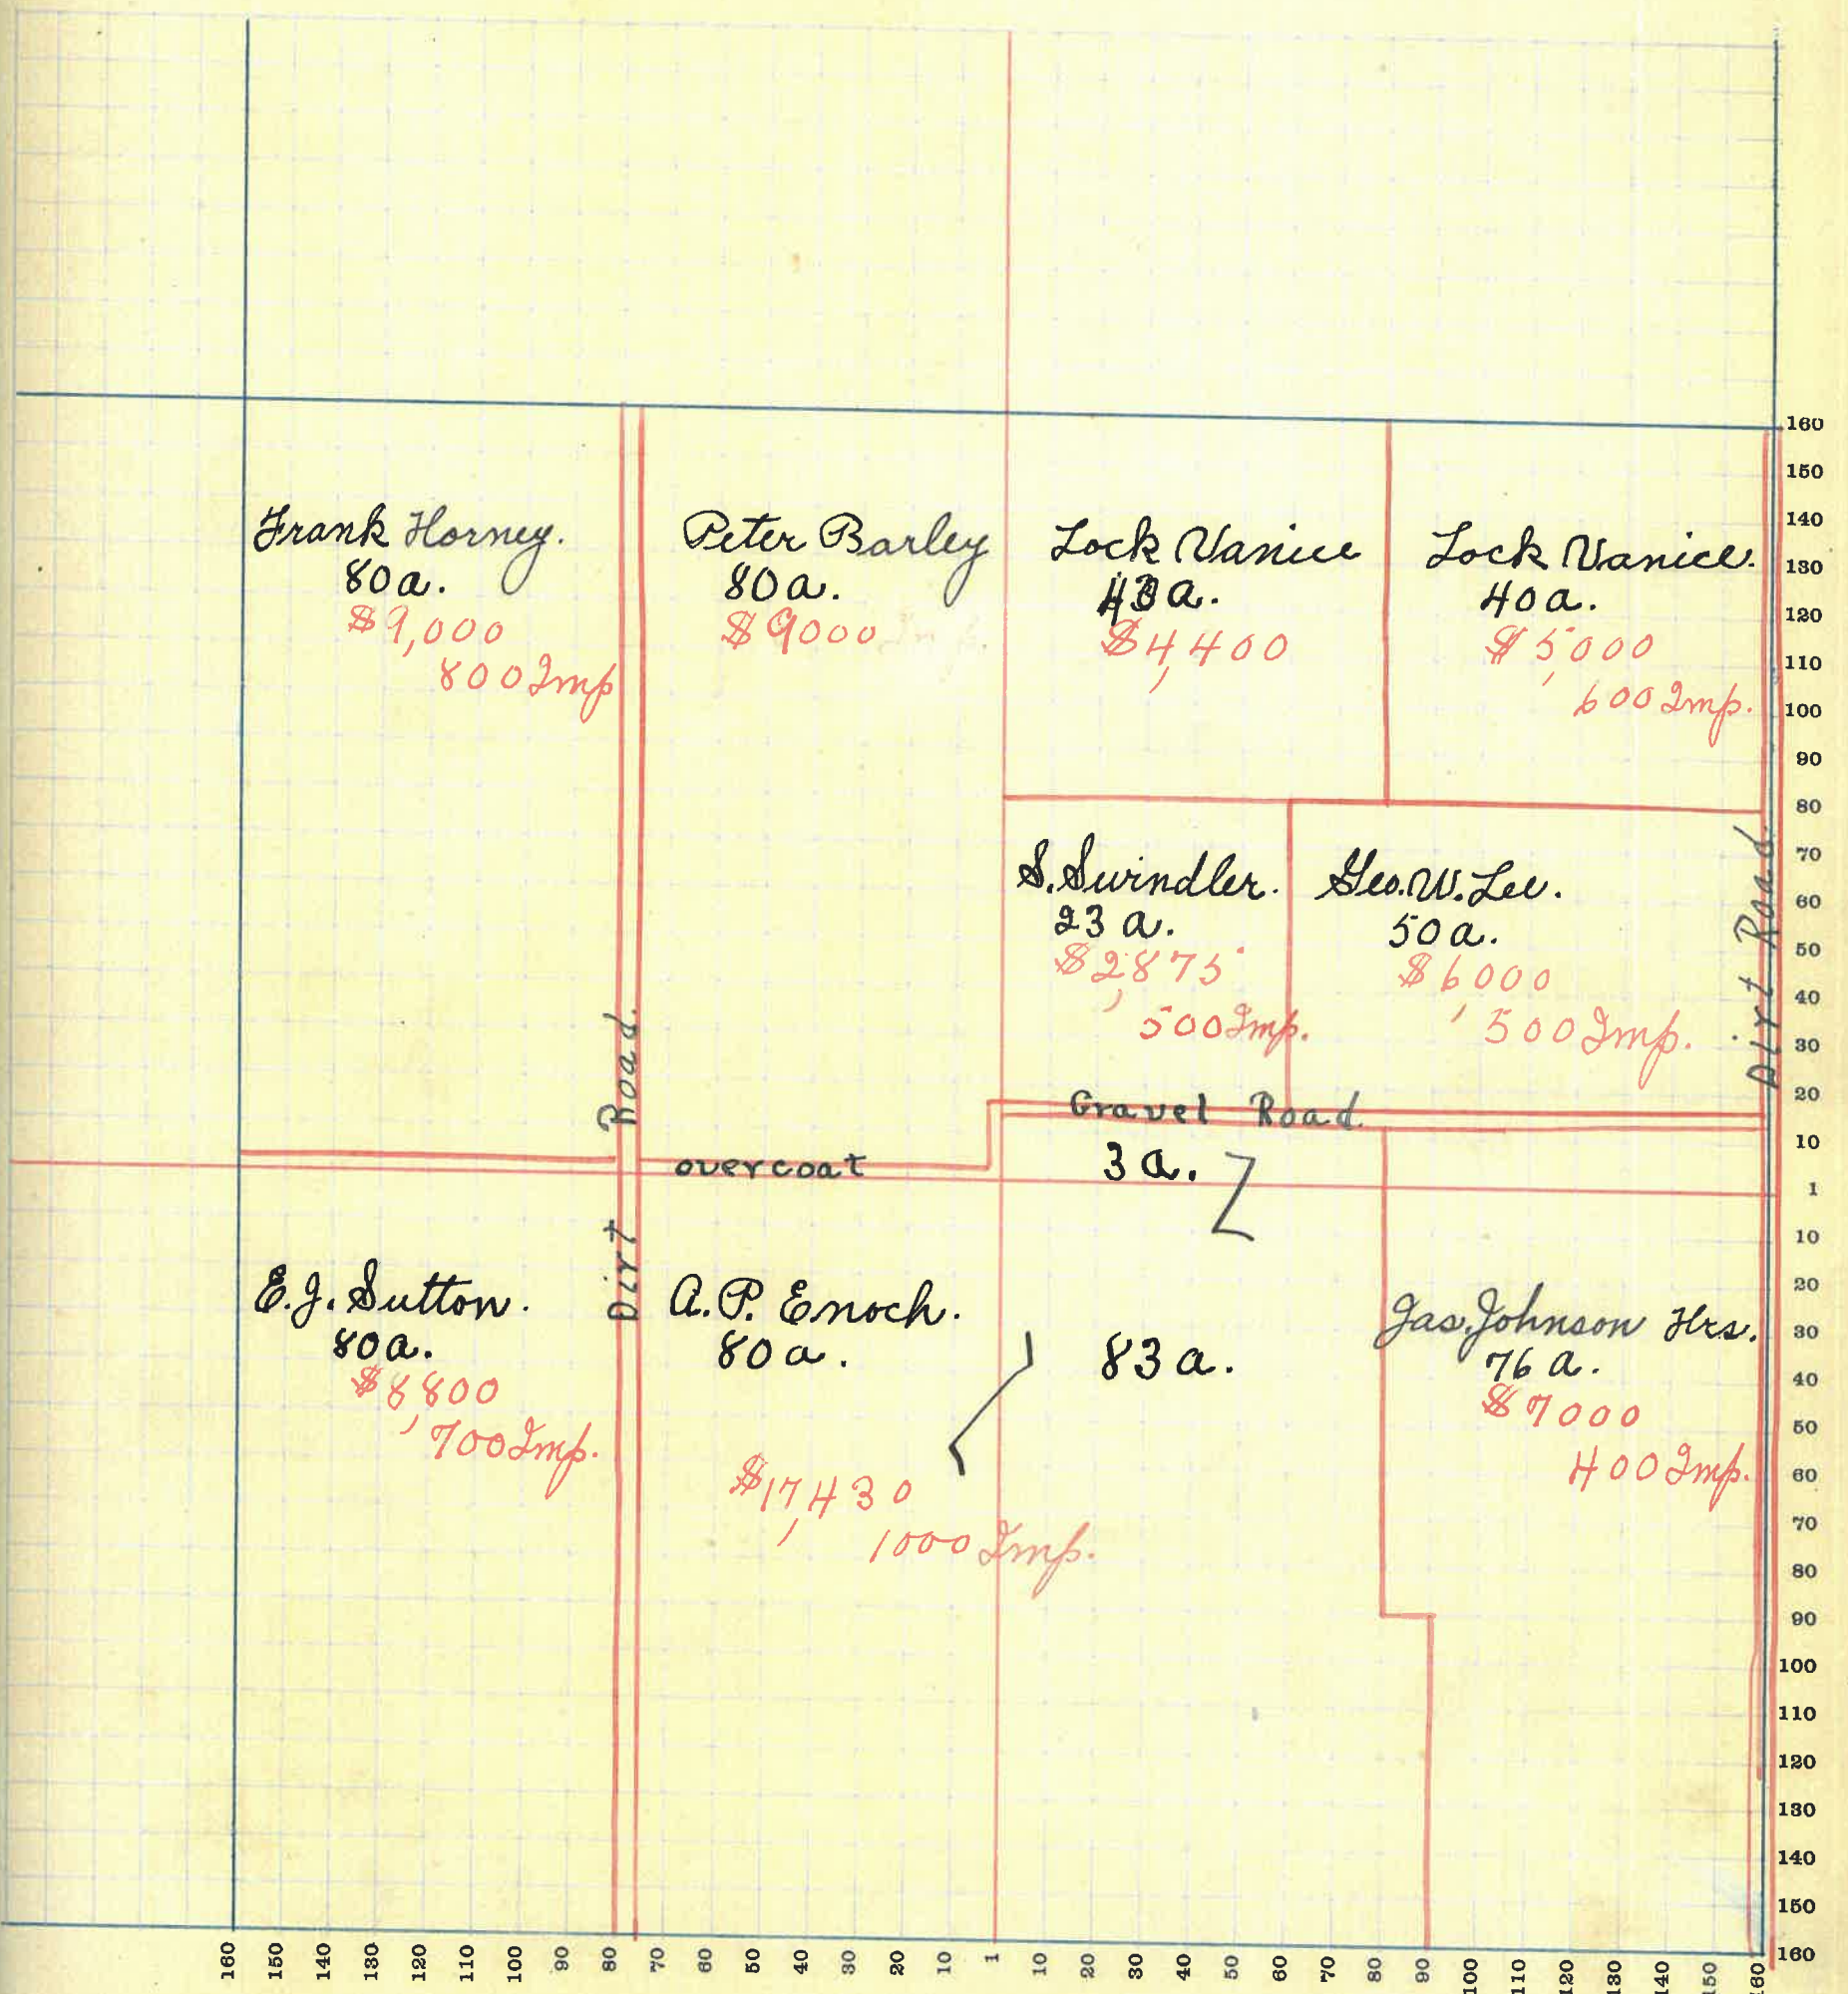 Frank Horney.
80a.
$9,000
800 Imp
Peter Barley
80a.
$9000
Lock Vanice
43a.
$4,400
Lock Vanice.
40a.
$5,000
600 Imp.
S. Swindler.
23 a.
$2,875
500 Imp.
Geo. W. Lee.
50a.
$6,000
500 Imp.
Dirt Road.
Dirt Road.
Gravel Road
overcoat
3 a.
E.J. Sutton.
80a.
$8,800
700 Imp.
A. P. Enoch.
80a.
$17,430
1000 Imp.
83 a.
Jas. Johnson Hrs.
76 a.
$7000
400 Imp.
160
150
140
130
120
110
100
90
80
70
60
50
40
30
20
10
1
10
20
30
40
50
60
70
80
90
100
110
120
130
140
150
160
160 150 140 130 120 110 100 90 80 70 60 50 40 30 20 10 1 10 20 30 40 50 60 70 80 90 100 110 120 130 140 150 160